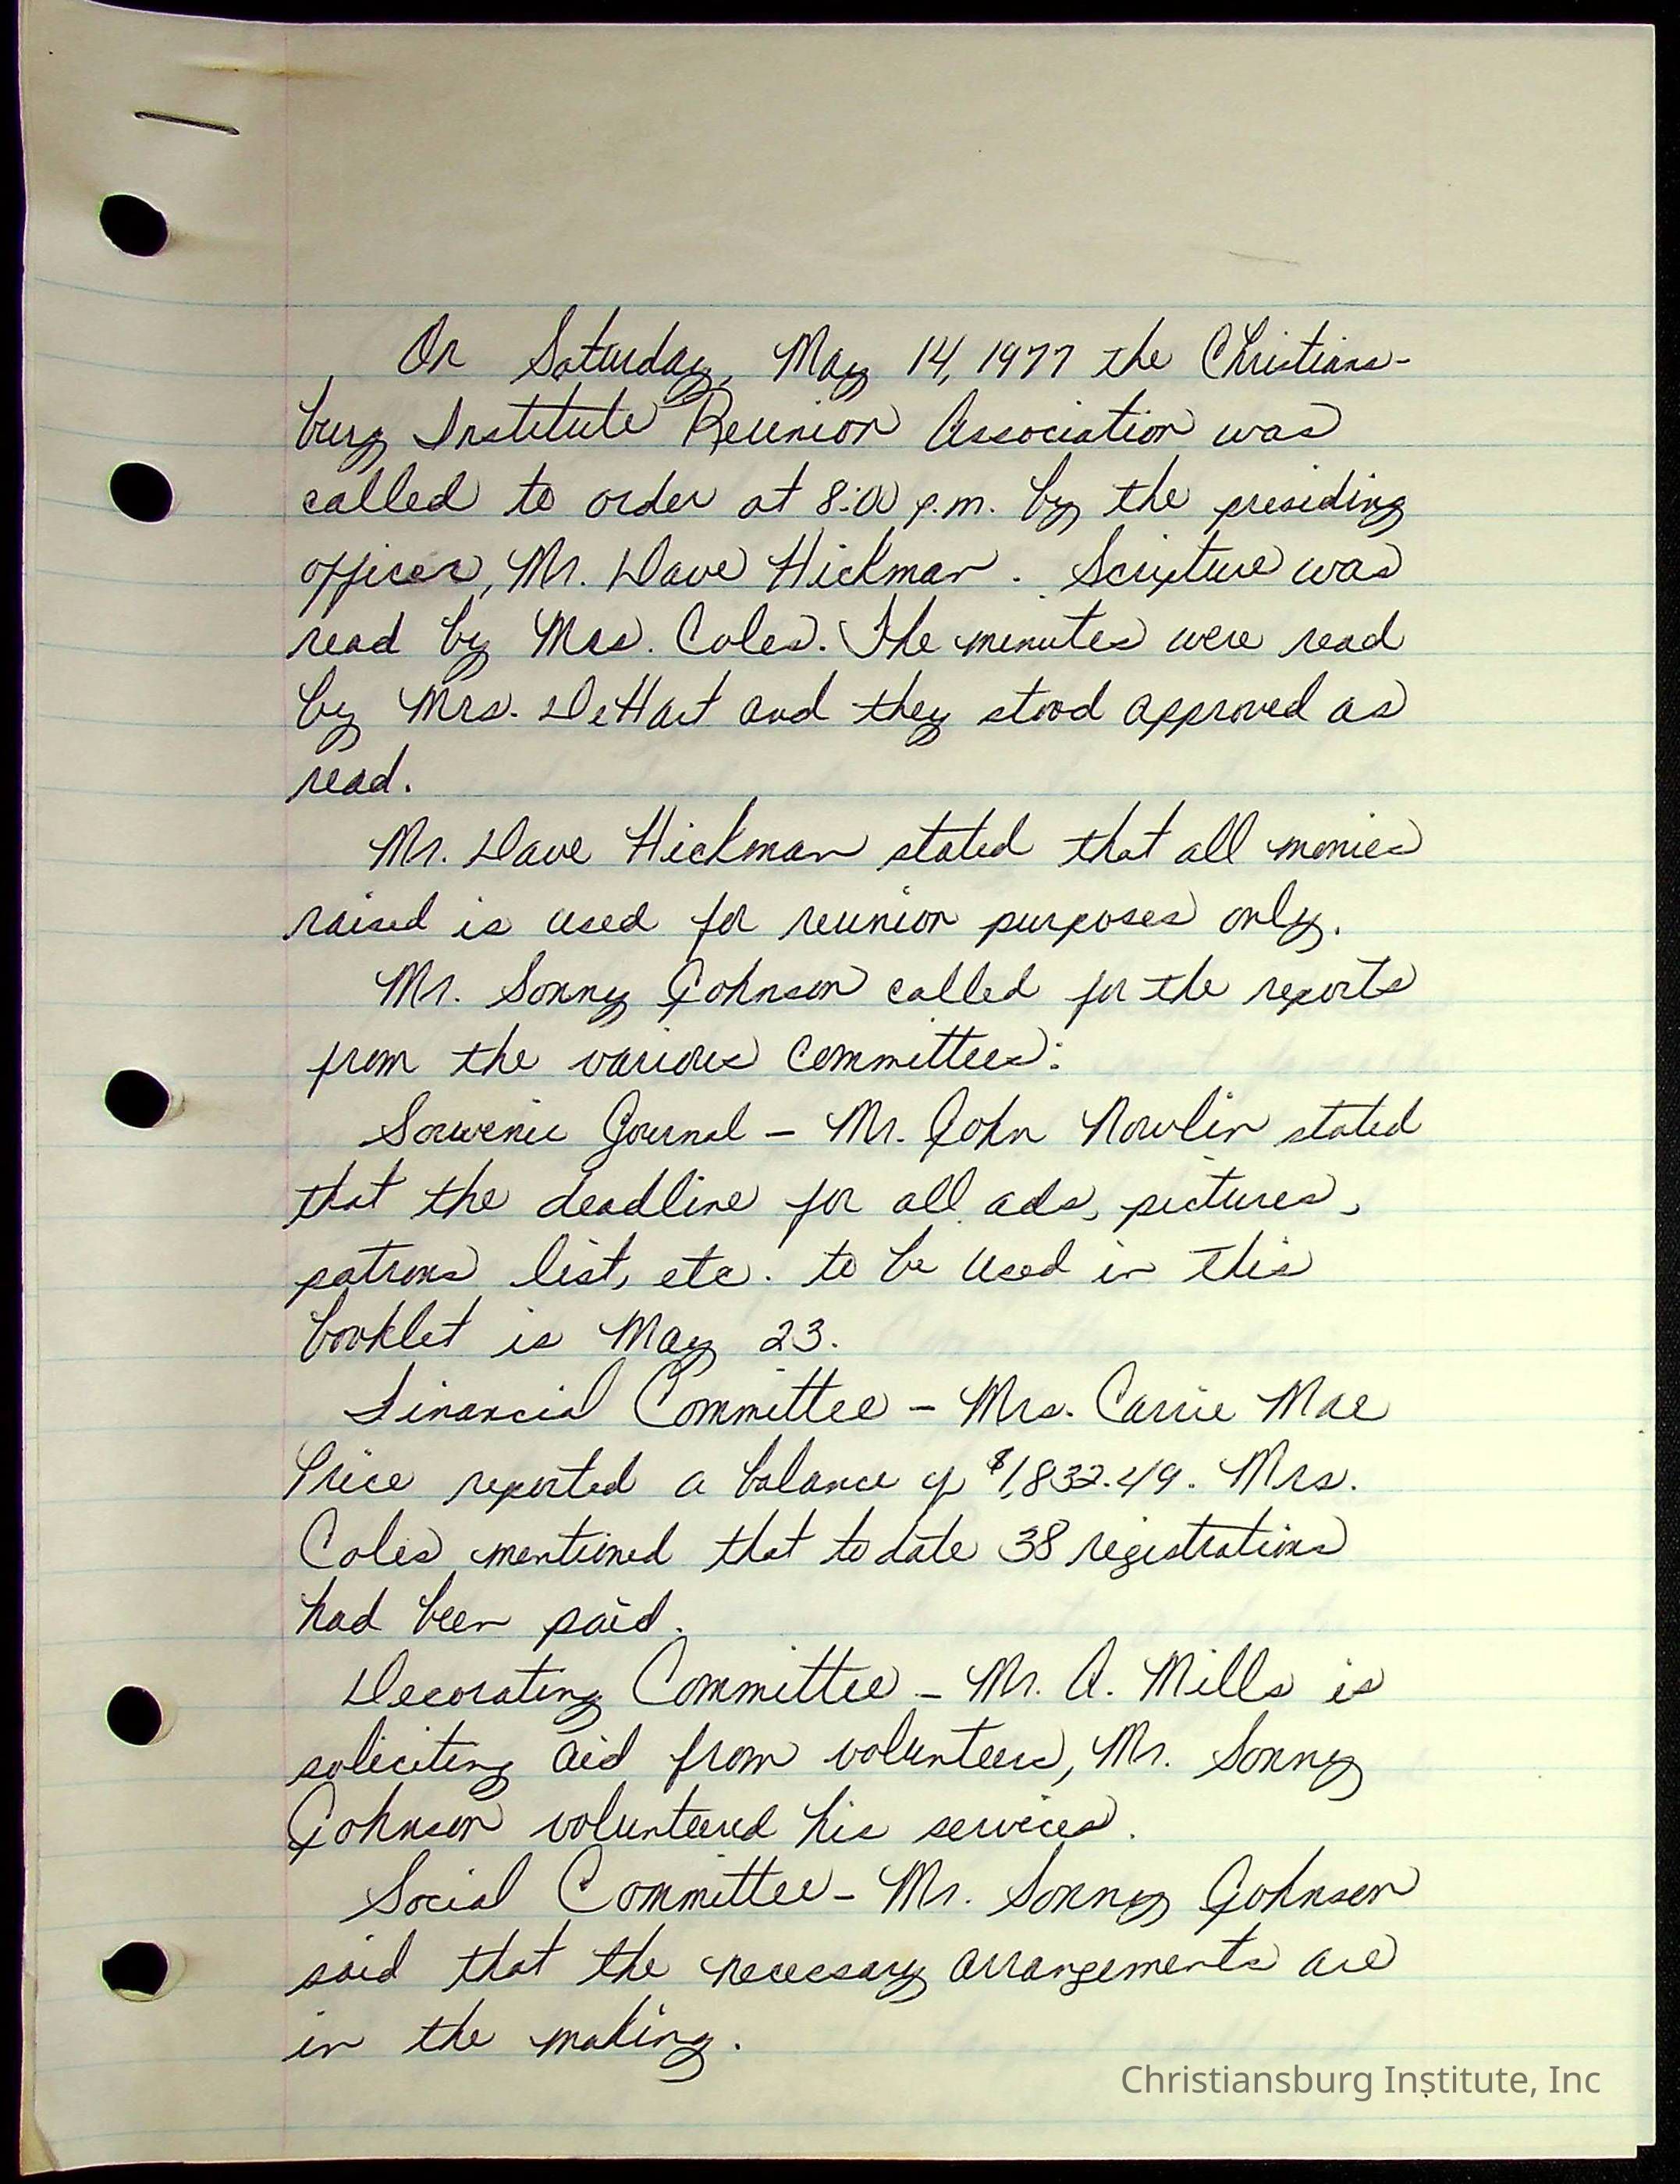 On Saturday, May 14, 1977 the Christians-
burg Institute Reunion Association was
called to order at 8:00 p.m. by the presiding
officer, Mr. Dave Hickman. Scripture was
read by Mrs. Coles. The minutes were read
by Mrs. DeHart and they stood approved as
read.
Mr. Dave Hickman stated that all monies
raised is used for reunion purposes only.
Mr. Sonny Johnson called for the reports
from the various committees:
Souvenir Journal - Mr. John Nowlin stated
that the deadline for all ads, pictures,
patrons list, etc. to be used in this
booklet is May 23.
Financial Committee - Mrs. Carrie Mae
Price reported a balance of $1,832.49. Mrs.
Coles mentioned that to date 38 registrations
had been paid.
Decorating Committee - Mr. A. Mills is
soliciting aid from volunteers, Mr. Sonny
Johnson volunteered his services.
Social Committee - Mr. Sonny Johnson
said that the necessary arrangements are
in the making.
Christiansburg Institute, Inc